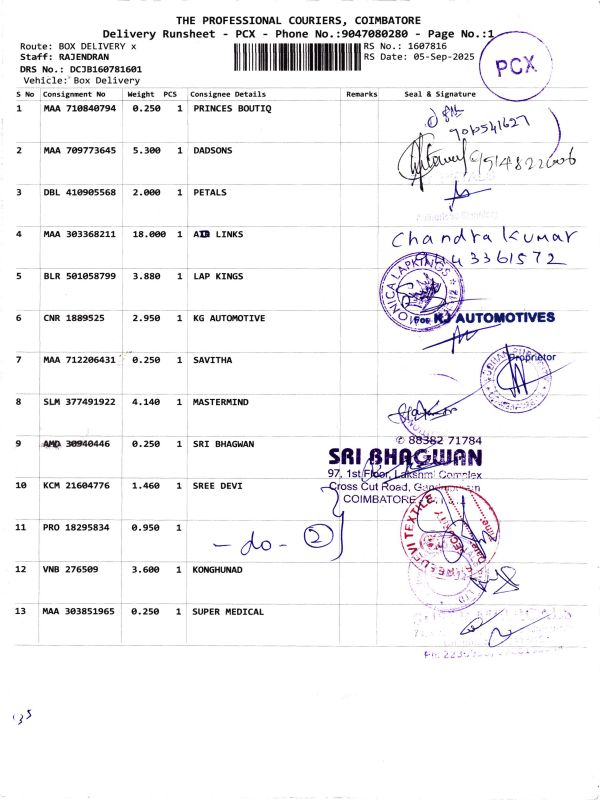 THE PROFESSIONAL COURIERS, COIMBATORE
Delivery Runsheet - PCX - Phone No.:9047080280 - Page No.:1
Route: BOX DELIVERY x
RS No.: 1607816
Staff: RAJENDRAN
RS Date: 05-Sep-2025
PCX
DRS No.: DCJB160781601
Vehicle: Box Delivery
S No Consignment No Weight PCS Consignee Details Remarks Seal & Signature
1 MAA 710840794 0.250 1 PRINCES BOUTIQ
2 MAA 709773645 5.300 1 DADSONS
3 DBL 410905568 2.000 1 PETALS
4 MAA 303368211 18.000 1 AIR LINKS Chandra Kumar
5 BLR 501058799 3.880 1 LAP KINGS
MONICA LAPKINGS
6 CNR 1889525 2.950 1 KG AUTOMOTIVE For KJ AUTOMOTIVES
Proprietor
7 MAA 712206431 0.250 1 SAVITHA
8 SLM 377491922 4.140 1 MASTERMIND
9 AMD 30940446 0.250 1 SRI BHAGWAN
✆ 88382 71784
SRI BHAGWAN
97, 1st Floor, Lakshmi Complex
Cross Cut Road,
COIMBATORE
10 KCM 21604776 1.460 1 SREE DEVI
SREE DEVI TEXTILE
SECURITY
11 PRO 18295834 0.950 1
- do - 2
12 VNB 276509 3.600 1 KONGHUNAD
13 MAA 303851965 0.250 1 SUPER MEDICAL